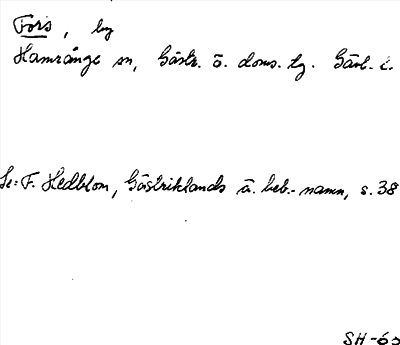 Fors, by
Hamrånge sn, Gästr. ö. doms. tg. Gävl. l.
Se: F. Hedblom, Gästriklands ä. beb.-namn, s. 38
SH-63